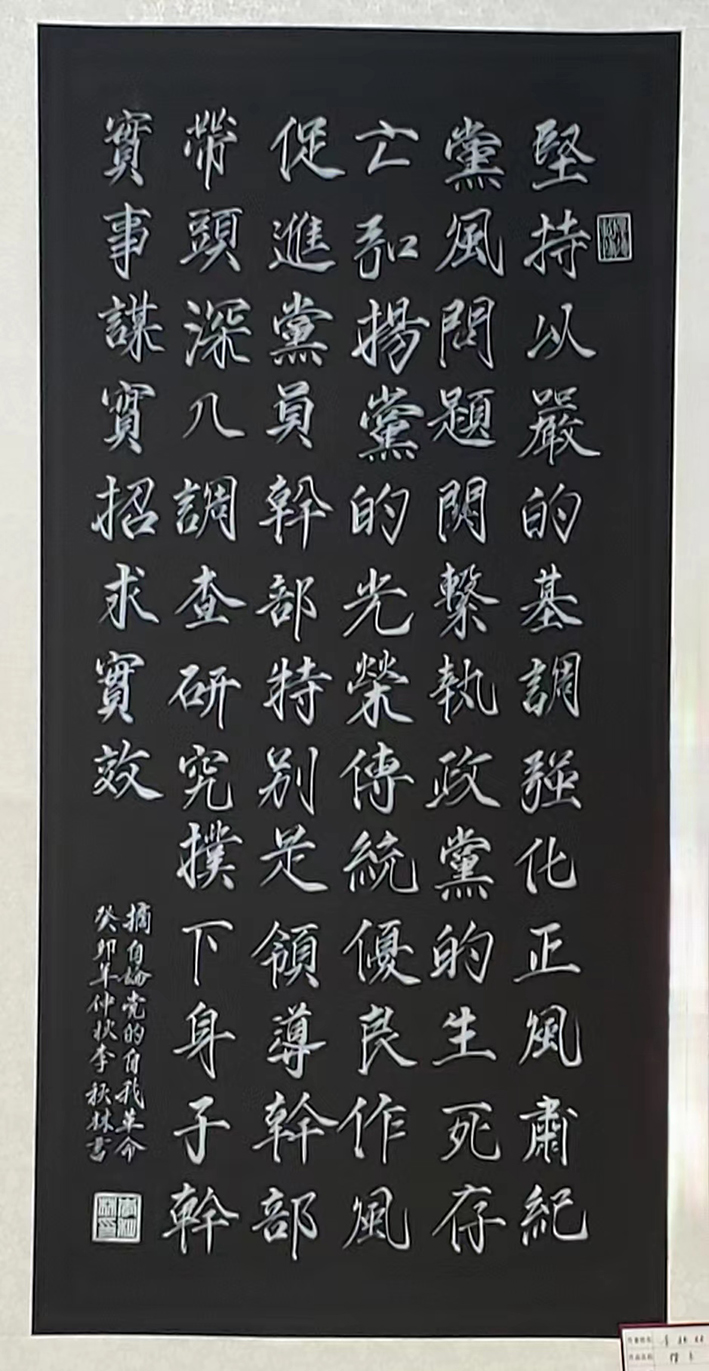 堅持以嚴的基調強化正風肅紀
黨風問題關繫執政黨的生死存
亡弘揚黨的光榮傳統優良作風
促進黨員幹部特别是領導幹部
带頭深入調查研究撲下身子幹
實事謀實招求實效
摘自論党的自我革命
癸卯年仲秋李秋林書